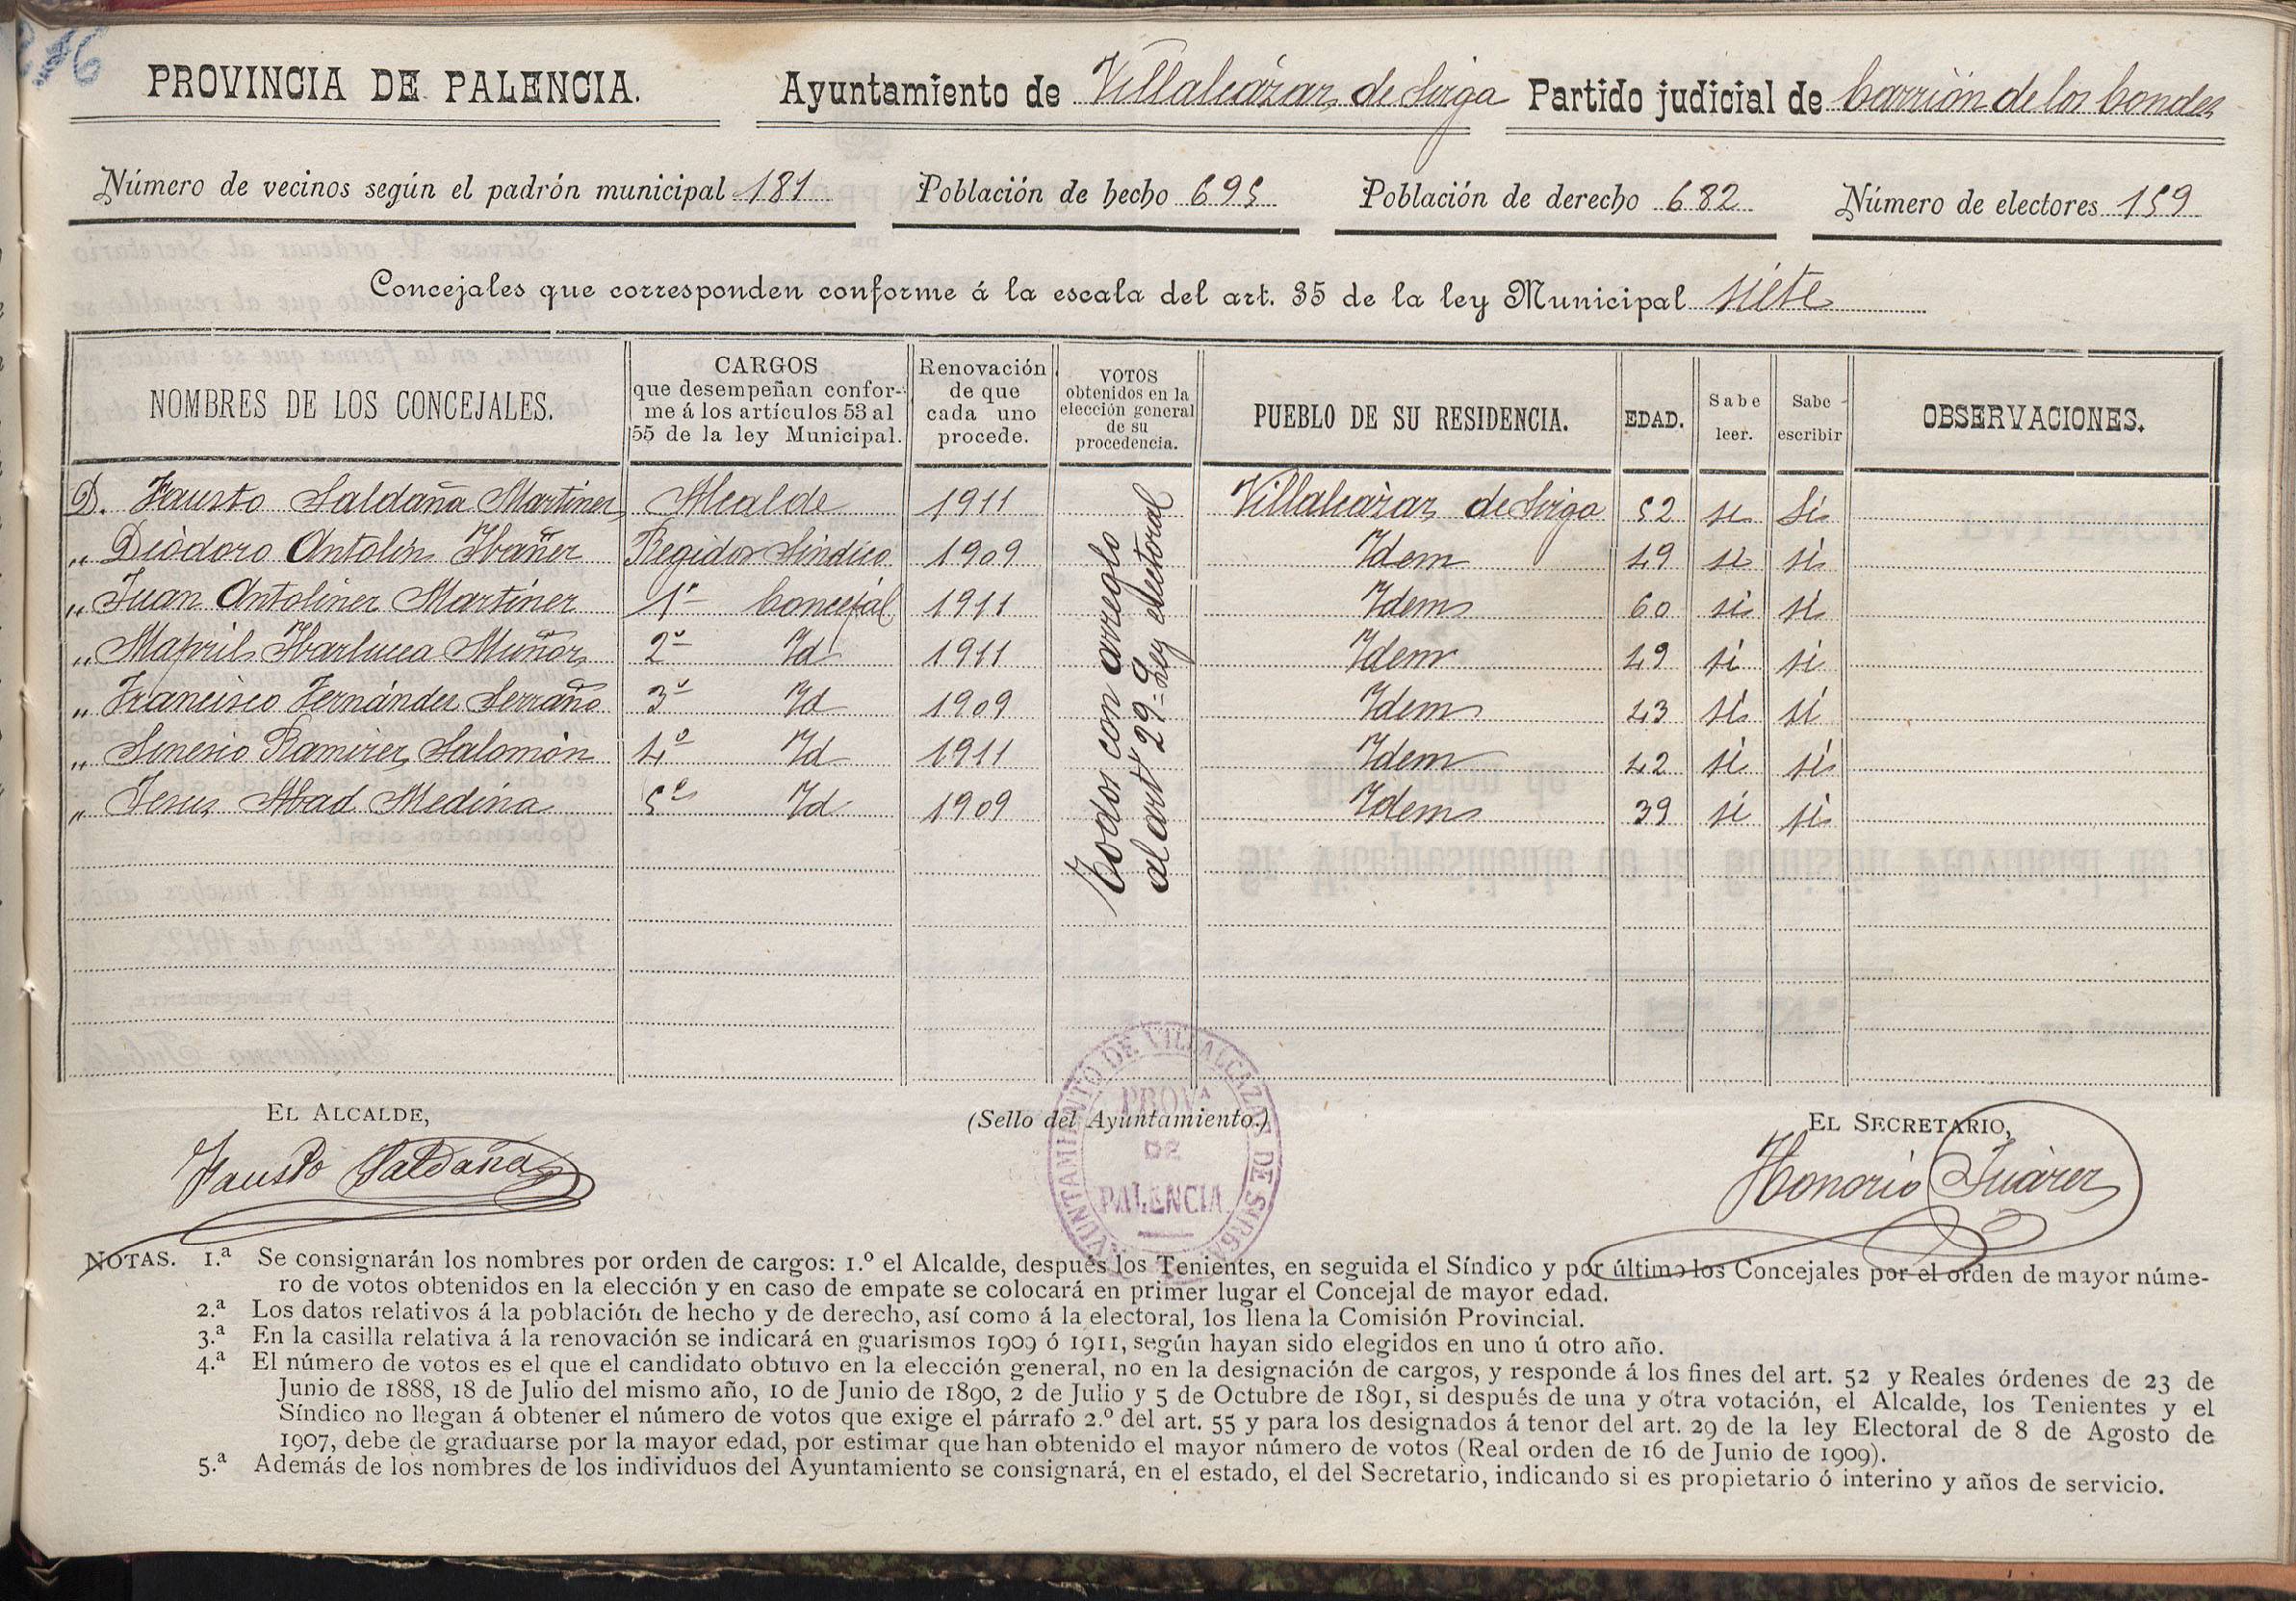 216
PROVINCIA DE PALENCIA. Ayuntamiento de Villalcázar de Sirga Partido judicial de Carrión de los Condes
Número de vecinos según el padrón municipal 181 Población de hecho 695 Población de derecho 682 Número de electores 159
Concejales que corresponden conforme á la escala del art. 35 de la ley Municipal siete
NOMBRES DE LOS CONCEJALES. CARGOS que desempeñan confor-me á los artículos 53 al 55 de la ley Municipal. Renovación de que cada uno procede. VOTOS obtenidos en la elección general de su procedencia. PUEBLO DE SU RESIDENCIA. EDAD. Sabe leer. Sabe escribir OBSERVACIONES.
D. Fausto Saldaña Martinez Alcalde 1911 Villalcázar de Sirga 52 si Si
„ Diódoro Antolín Ibañez Regidor Síndico 1909 Idem 49 si si
„ Juan Antolinez Martinez 1º Concejal 1911 Idem 60 si si
„ Ibarlucea Muñoz 2º Id 1911 Idem 49 si si
„ Francisco Fernández Serrano 3º Id 1909 Idem 43 si si
„ Sinesio Ramirez Salomón 4º Id 1911 Idem 42 si si
„ Jesus Abad Medina 5º Id 1909 Idem 39 si si
Todos con arreglo
al artº 29 = Ley electoral
EL ALCALDE, (Sello del Ayuntamiento.) EL SECRETARIO,
Fausto Saldaña
Honorio Juárez
AYUNTAMIENTO DE VILLALCAZAR DE SIRGA
PROVª
DE
PALENCIA
NOTAS. 1.ª Se consignarán los nombres por orden de cargos: 1.º el Alcalde, después los Tenientes, en seguida el Síndico y por último los Concejales por el orden de mayor núme-
ro de votos obtenidos en la elección y en caso de empate se colocará en primer lugar el Concejal de mayor edad.
2.ª Los datos relativos á la población de hecho y de derecho, así como á la electoral, los llena la Comisión Provincial.
3.ª En la casilla relativa á la renovación se indicará en guarismos 1909 ó 1911, según hayan sido elegidos en uno ú otro año.
4.ª El número de votos es el que el candidato obtuvo en la elección general, no en la designación de cargos, y responde á los fines del art. 52 y Reales órdenes de 23 de
Junio de 1888, 18 de Julio del mismo año, 10 de Junio de 1890, 2 de Julio y 5 de Octubre de 1891, si después de una y otra votación, el Alcalde, los Tenientes y el
Síndico no llegan á obtener el número de votos que exige el párrafo 2.º del art. 55 y para los designados á tenor del art. 29 de la ley Electoral de 8 de Agosto de
1907, debe de graduarse por la mayor edad, por estimar que han obtenido el mayor número de votos (Real orden de 16 de Junio de 1909).
5.ª Además de los nombres de los individuos del Ayuntamiento se consignará, en el estado, el del Secretario, indicando si es propietario ó interino y años de servicio.